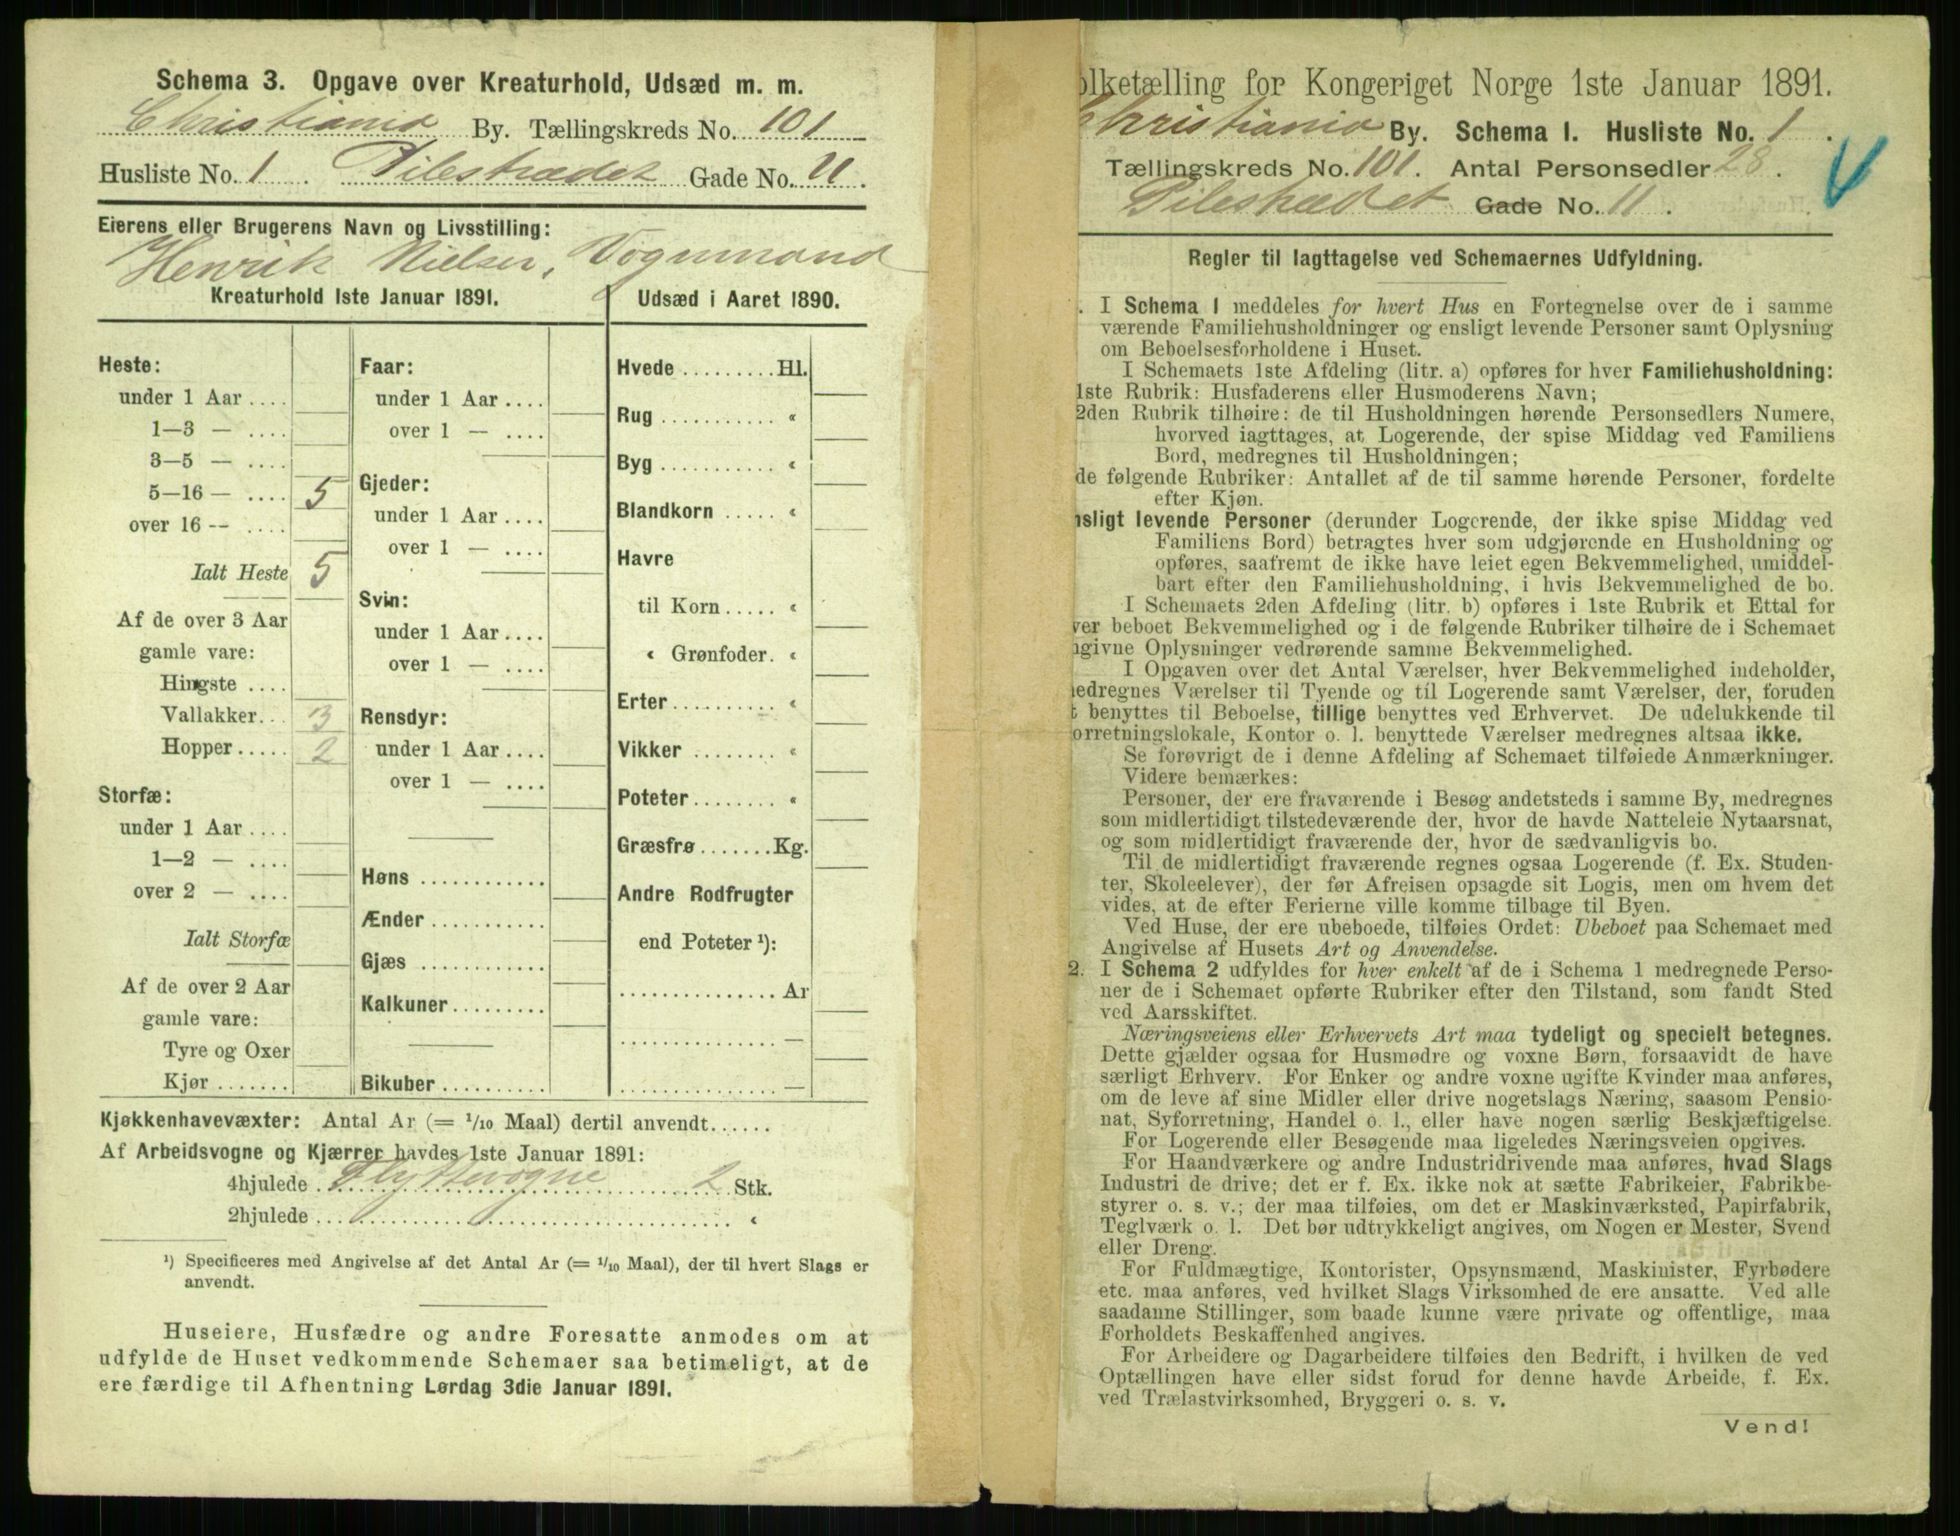 Schema 3. Opgave over Kreaturhold, Udsæd m. m.
Christiania By. Tællingskreds No. 101
Husliste No. 1. Pilestrædet Gade No. 11.
Eierens eller Brugerens Navn og Livsstilling:
Henrik Nielsen, Vognmand
Kreaturhold 1ste Januar 1891.
Heste:
under 1 Aar ....
1—3 — ....
3—5 — ....
5—16 — .... 5
over 16 -- ....
Ialt Heste 5
Af de over 3 Aar
gamle vare:
Hingste ....
Vallakker... 3
Hopper..... 2
Storfæ:
under 1 Aar ....
1—2 — ....
over 2 — ....
Ialt Storfæ
Af de over 2 Aar
gamle vare:
Tyre og Oxer
Kjør .......
Faar:
under 1 Aar ....
over 1 — ....
Gjeder:
under 1 Aar ....
over 1 — ....
Svin:
under 1 Aar ....
over 1 — ....
Rensdyr:
under 1 Aar ....
over 1 — ....
Høns ............
Ænder ............
Gjæs ............
Kalkuner.........
Bikuber ..........
Udsæd i Aaret 1890.
Hvede ......... Hl.
Rug ........... «
Byg ........... «
Blandkorn ..... «
Havre
til Korn ..... «
« Grønfoder. «
Erter.......... «
Vikker ........ «
Poteter........ «
Græsfrø ....... Kg.
Andre Rodfrugter
end Poteter ¹):
............... Ar
............... —
............... —
Kjøkkenhavevæxter: Antal Ar (= 1/10 Maal) dertil anvendt......
Af Arbeidsvogne og Kjærrer havdes 1ste Januar 1891:
4hjulede . Flyttevogne 2 Stk.
2hjulede ........ «
¹) Specificeres med Angivelse af det Antal Ar (= 1/10 Maal), der til hvert Slags er
anvendt.
Huseiere, Husfædre og andre Foresatte anmodes om at
udfylde de Huset vedkommende Schemaer saa betimeligt, at de
ere færdige til Afhentning Lørdag 3die Januar 1891.
olketælling for Kongeriget Norge 1ste Januar 1891.
Christiania By. Schema 1. Husliste No. 1.
Tællingskreds No. 101. Antal Personsedler 28.
Pilestrædet Gade No. 11.
Regler til Iagttagelse ved Schemaernes Udfyldning.
. I Schema 1 meddeles for hvert Hus en Fortegnelse over de i samme
værende Familiehusholdninger og ensligt levende Personer samt Oplysning
om Beboelsesforholdene i Huset.
I Schemaets 1ste Afdeling (litr. a) opføres for hver Familiehusholdning:
1ste Rubrik: Husfaderens eller Husmoderens Navn;
2den Rubrik tilhøire: de til Husholdningen hørende Personsedlers Numere,
hvorved iagttages, at Logerende, der spise Middag ved Familiens
Bord, medregnes til Husholdningen;
de følgende Rubriker: Antallet af de til samme hørende Personer, fordelte
efter Kjøn.
nsligt levende Personer (derunder Logerende, der ikke spise Middag ved
Familiens Bord) betragtes hver som udgjørende en Husholdning og
opføres, saafremt de ikke have leiet egen Bekvemmelighed, umiddel-
bart efter den Familiehusholdning, i hvis Bekvemmelighed de bo.
I Schemaets 2den Afdeling (litr. b) opføres i 1ste Rubrik et Ettal for
ver beboet Bekvemmelighed og i de følgende Rubriker tilhøire de i Schemaet
ngivne Oplysninger vedrørende samme Bekvemmelighed.
I Opgaven over det Antal Værelser, hver Bekvemmelighed indeholder,
nedregnes Værelser til Tyende og til Logerende samt Værelser, der, foruden
t benyttes til Beboelse, tillige benyttes ved Erhvervet. De udelukkende til
orretningslokale, Kontor o. l. benyttede Værelser medregnes altsaa ikke.
Se forøvrigt de i denne Afdeling af Schemaet tilføiede Anmærkninger.
Videre bemærkes:
Personer, der ere fraværende i Besøg andetsteds i samme By, medregnes
som midlertidigt tilstedeværende der, hvor de havde Natteleie Nytaarsnat,
og som midlertidigt fraværende der, hvor de sædvanligvis bo.
Til de midlertidigt fraværende regnes ogsaa Logerende (f. Ex. Studen-
ter, Skoleelever), der før Afreisen opsagde sit Logis, men om hvem det
vides, at de efter Ferierne ville komme tilbage til Byen.
Ved Huse, der ere ubeboede, tilføies Ordet: Ubeboet paa Schemaet med
Angivelse af Husets Art og Anvendelse.
2. I Schema 2 udfyldes for hver enkelt af de i Schema 1 medregnede Perso-
ner de i Schemaet opførte Rubriker efter den Tilstand, som fandt Sted
ved Aarsskiftet.
Næringsveiens eller Erhvervets Art maa tydeligt og specielt betegnes.
Dette gjælder ogsaa for Husmødre og voxne Børn, forsaavidt de have
særligt Erhverv. For Enker og andre voxne ugifte Kvinder maa anføres,
om de leve af sine Midler eller drive nogetslags Næring, saasom Pensio-
nat, Syforretning, Handel o. l., eller have nogen særlig Beskjæftigelse.
For Logerende eller Besøgende maa ligeledes Næringsveien opgives.
For Haandværkere og andre Industridrivende maa anføres, hvad Slags
Industri de drive; det er f. Ex. ikke nok at sætte Fabrikeier, Fabrikbe-
styrer o. s. v.; der maa tilføies, om det er Maskinværksted, Papirfabrik,
Teglværk o. l. Det bør udtrykkeligt angives, om Nogen er Mester, Svend
eller Dreng.
For Fuldmægtige, Kontorister, Opsynsmænd, Maskinister, Fyrbødere
etc. maa anføres, ved hvilket Slags Virksomhed de ere ansatte. Ved alle
saadanne Stillinger, som baade kunne være private og offentlige, maa
Forholdets Beskaffenhed angives.
For Arbeidere og Dagarbeidere tilføies den Bedrift, i hvilken de ved
Optællingen have eller sidst forud for denne havde Arbeide, f. Ex.
ved Trælastvirksomhed, Bryggeri o. s. v.
Vend!